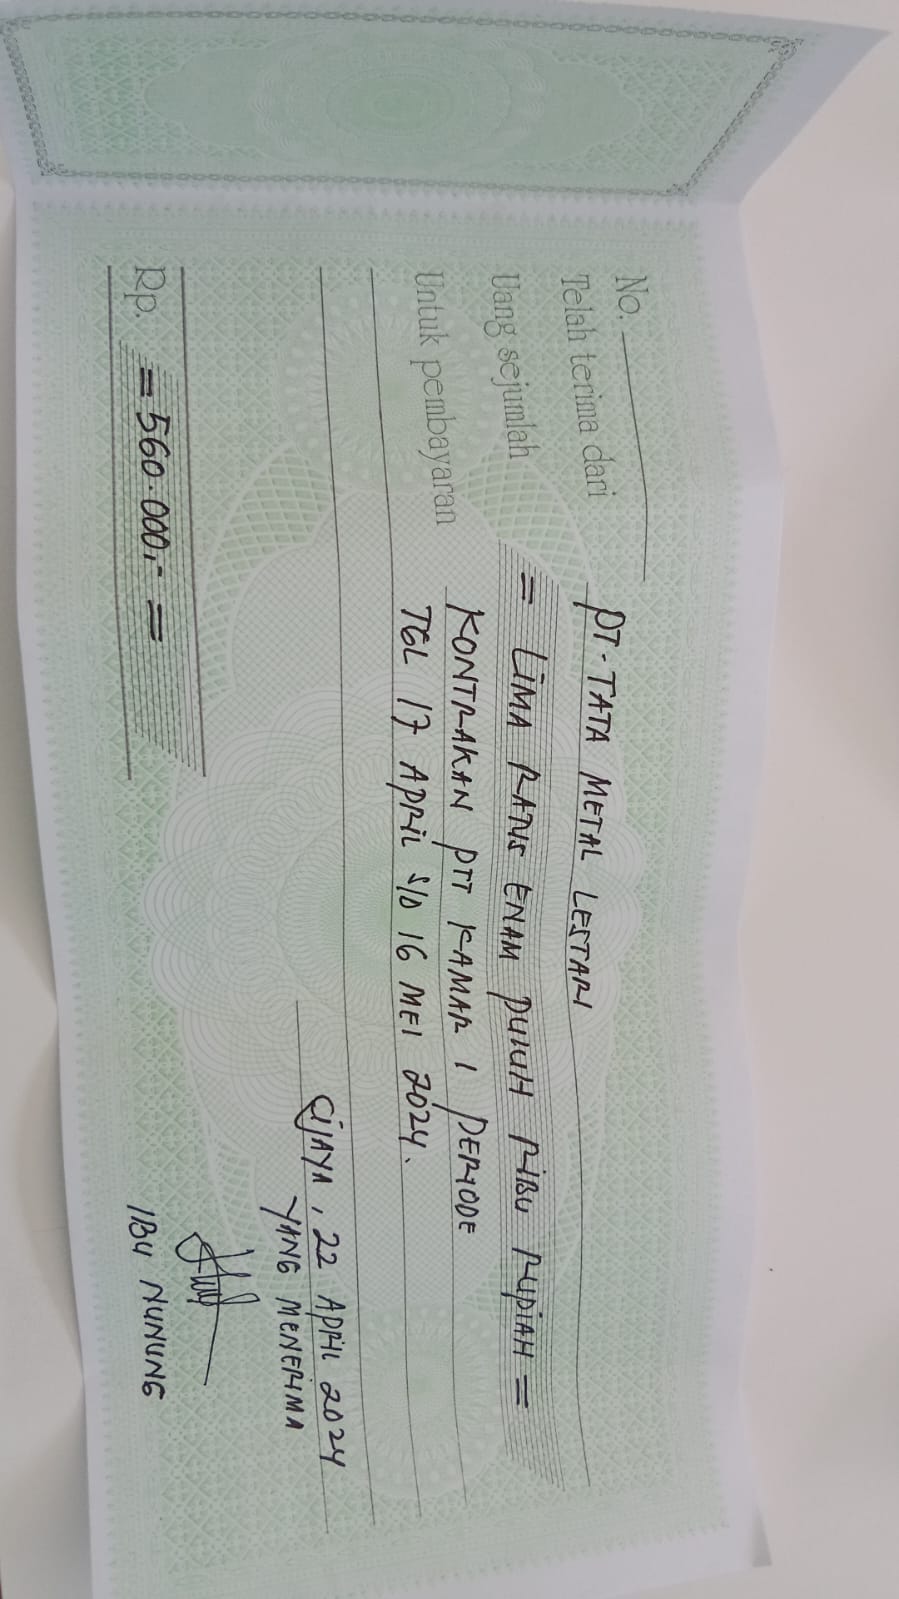 No.
Telah terima dari PT. TATA METAL LESTARI
Uang sejumlah = LIMA RATUS ENAM PULUH RIBU RUPIAH =
Untuk pembayaran KONTRAKAN PTT KAMAR 1 PERIODE
TGL 17 APRIL S/D 16 MEI 2024.
CIJAYA, 22 APRIL 2024
YANG MENERIMA
Rp. = 560.000,- =
IBU NUNUNG